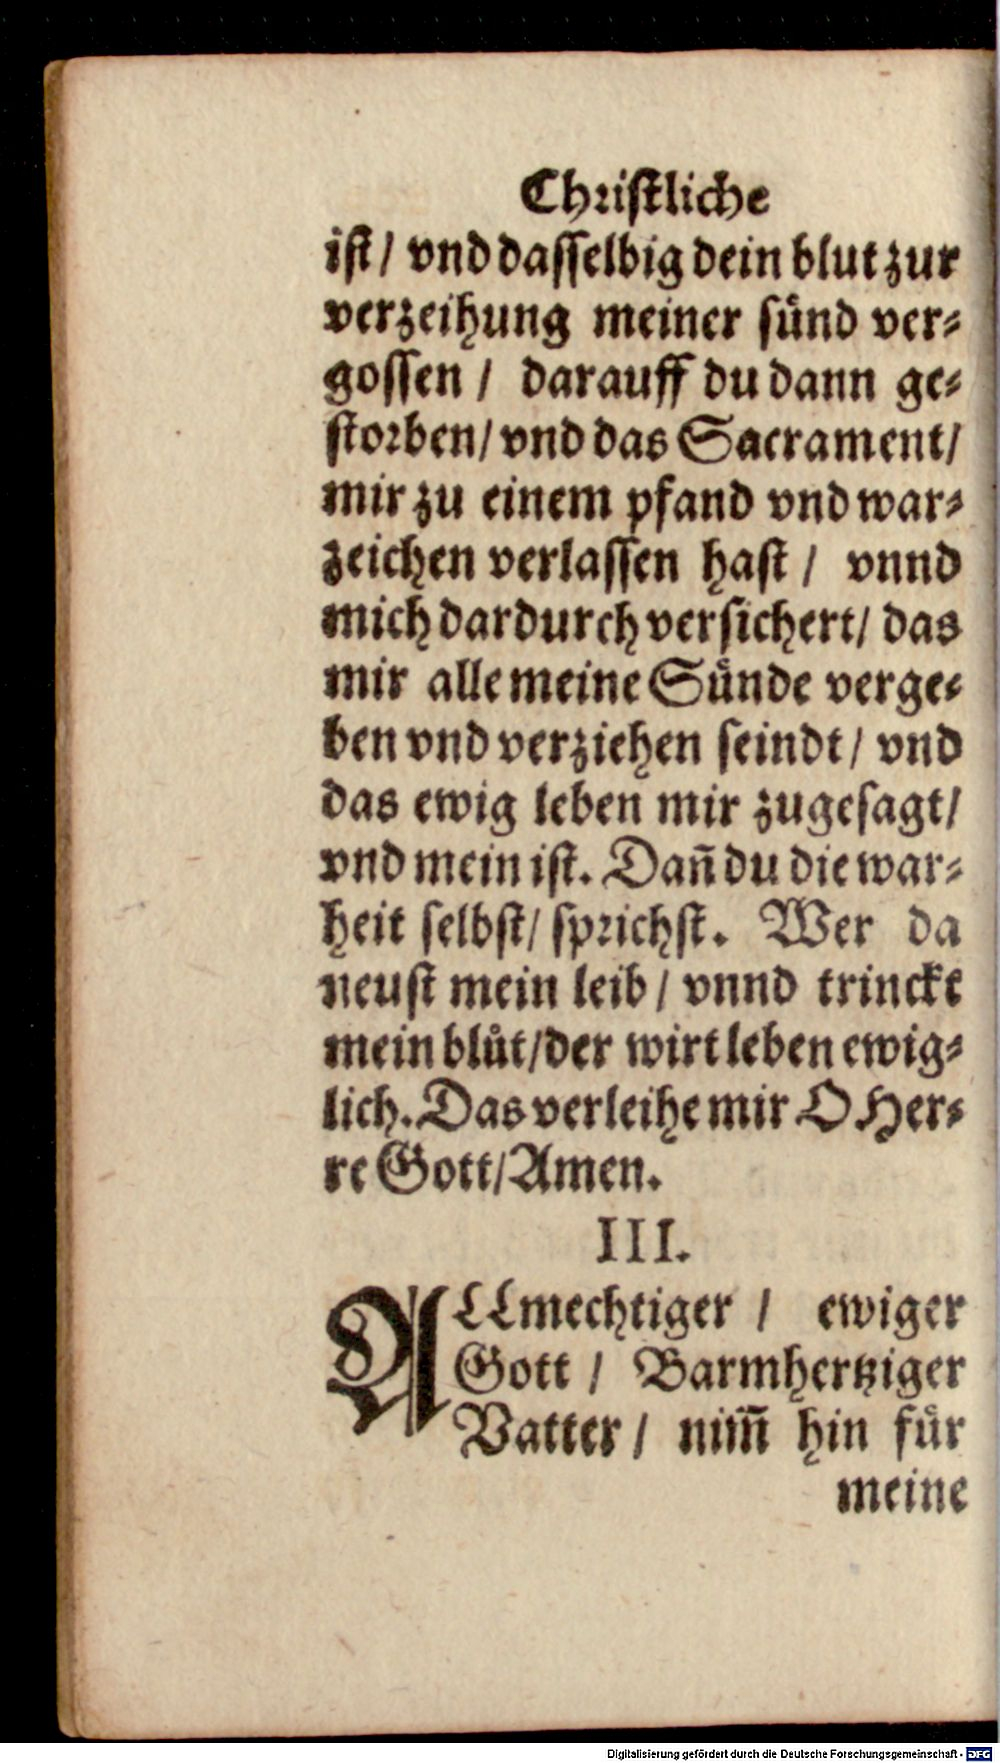 Christliche
ist / vnd dasselbig dein blut zur
verzeihung meiner sünd ver-
gossen / darauff du dann ge-
storben / vnd das Sacrament /
mir zu einem pfand vnd war-
zeichen verlassen hast / vnnd
mich dardurch versichert / das
mir alle meine Sünde verge-
ben vnd verziehen seindt / vnd
das ewig leben mir zugesagt /
vnd mein ist. Dañ du die war-
heit selbst / sprichst. Wer da
neust mein leib / vnnd trinckt
mein blůt / der wirt leben ewig-
lich. Das verleihe mir O Her-
re Gott / Amen.
III.
ALLmechtiger / ewiger
Gott / Barmhertziger
Vatter / nim̃ hin für
meine
Digitalisierung gefördert durch die Deutsche Forschungsgemeinschaft - DFG